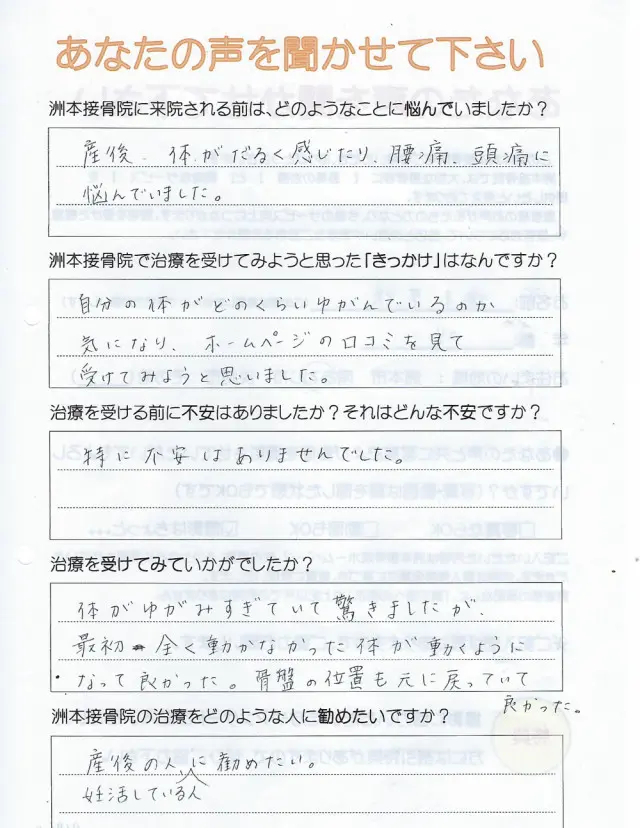 あなたの声を聞かせて下さい
洲本接骨院に来院される前は、どのようなことに悩んでいましたか？
産後、体がだるく感じたり、腰痛、頭痛に
悩んでいました。
洲本接骨院で治療を受けてみようと思った「きっかけ」はなんですか？
自分の体がどのくらいゆがんでいるのか
気になり、ホームページの口コミを見て
受けてみようと思いました。
治療を受ける前に不安はありましたか？それはどんな不安ですか？
特に不安はありませんでした。
治療を受けてみていかがでしたか？
体がゆがみすぎていて驚きましたが、
最初 全く動かなかった体が動くように
なって良かった。骨盤の位置も元に戻っていて
良かった。
洲本接骨院の治療をどのような人に勧めたいですか？
産後の人に勧めたい。
妊活している人